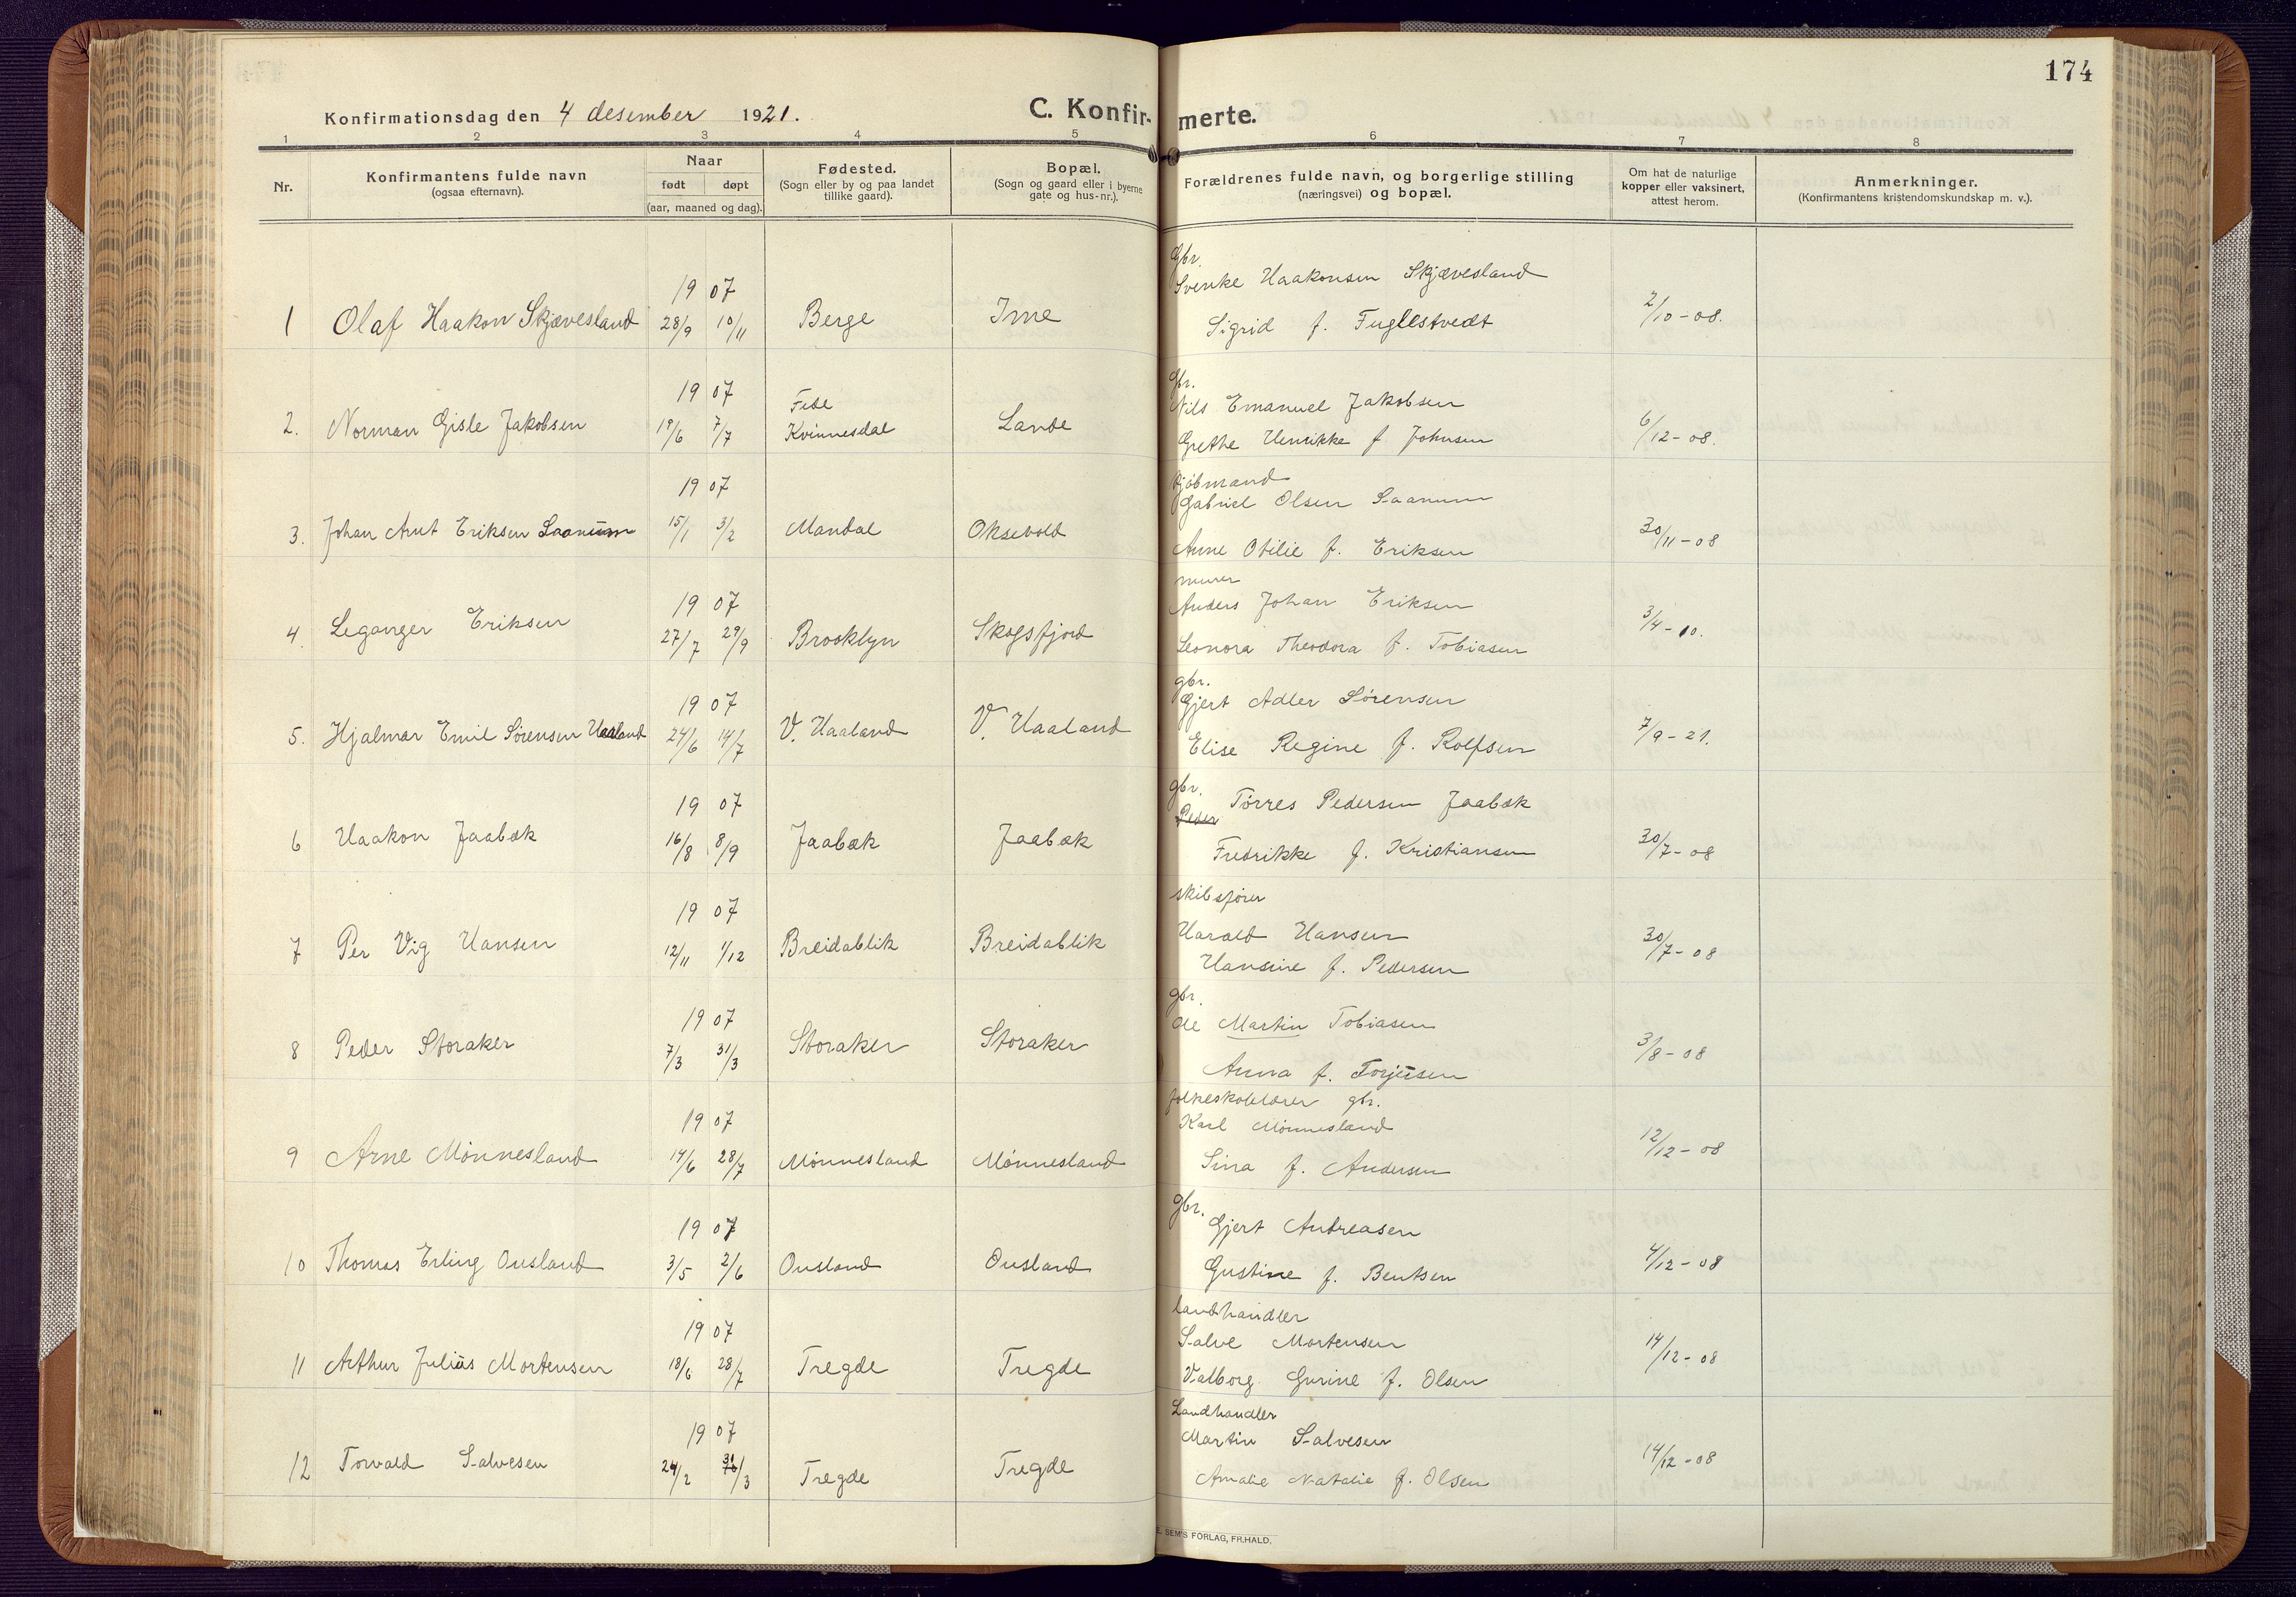 174
Konfirmationsdag den 4 desember 1921.
C. Konfir-merte.
1 2 3 4 5 6 7 8
Nr.
Konfirmantens fulde navn
(ogsaa efternavn).
Naar
født døpt
(aar, maaned og dag).
Fødested.
(Sogn eller by og paa landet
tillike gaard).
Bopæl.
(Sogn og gaard eller i byerne
gate og hus-nr.).
Forældrenes fulde navn, og borgerlige stilling
(næringsvei) og bopæl.
Om hat de naturlige
kopper eller vaksinert,
attest herom.
Anmerkninger.
(Konfirmantens kristendomskundskap m. v.).
Gbr.
19 07 Svenke Haakonsen Skjævesland
1 Olaf Haakon Skjævesland 28/9 10/11 Berge Ime Sigrid f. Fuglestvedt 2/10-08.
Gbr.
19 07 Fede Nils Emanuel Jakobsen
2. Norman Gisle Jakobsen 19/6 7/7 Kvinnesdal Lande Grethe Henrikke f Johnsen 6/12-08.
19 07 Gabriel Olsen Saanum
3. Johan Arnt Eriksen Saanum 15/1 3/2 Mandal Oksevold Anne Otilie f. Eriksen 30/11-08
murer
19 07 Anders Johan Eriksen
4. Leganger Eriksen 27/7 29/9 Brooklyn Skogsfjord Leonora Theodora f. Tobiasen 3/4-10.
gbr.
19 07 Gjert Adler Sørensen
5. Hjalmar Emil Sørensen Haaland 24/6 14/7 V. Haaland V. Haaland Elise Regine f. Rolfsen 7/9-21.
gbr.
19 07 Peder Tørres Pedersen Jaabæk
6 Haakon Jaabæk 16/8 8/9 Jaabæk Jaabæk Fredrikke f. Kristiansen 30/7-08
skibsfører
19 07 Harald Hansen
7 Per Vig Hansen 12/11 1/12 Breidablik Breidablik Hansine f. Pedersen 30/7-08
gbr.
19 07 Ole Martin Tobiasen
8 Peder Storaker 7/3 31/3 Storaker Storaker Anna f. Torjusen 3/8-08
folkeskolelærer gbr.
19 07 Karl Mønnesland
9 Arne Mønnesland 14/6 28/7 Mønnesland Mønnesland Sina f. Andersen 12/12-08
gbr.
19 07 Gjert Andreasen
10 Thomas Erling Ousland 3/5 2/6 Ousland Ousland Gustine f. Bentsen 4/12-08
landhandler
19 07 Salve Mortensen
11 Arthur Julius Mortensen 18/6 28/7 Tregde Tregde Valborg Gurine f. Olsen 14/12-08
Landhandler
19 07 Martin Salvesen
12 Torvald Salvesen 24/2 31/3 Tregde Tregde Amalie Natalie f. Olsen 14/12-08
E. SEM'S FORLAG, FR.HALD.